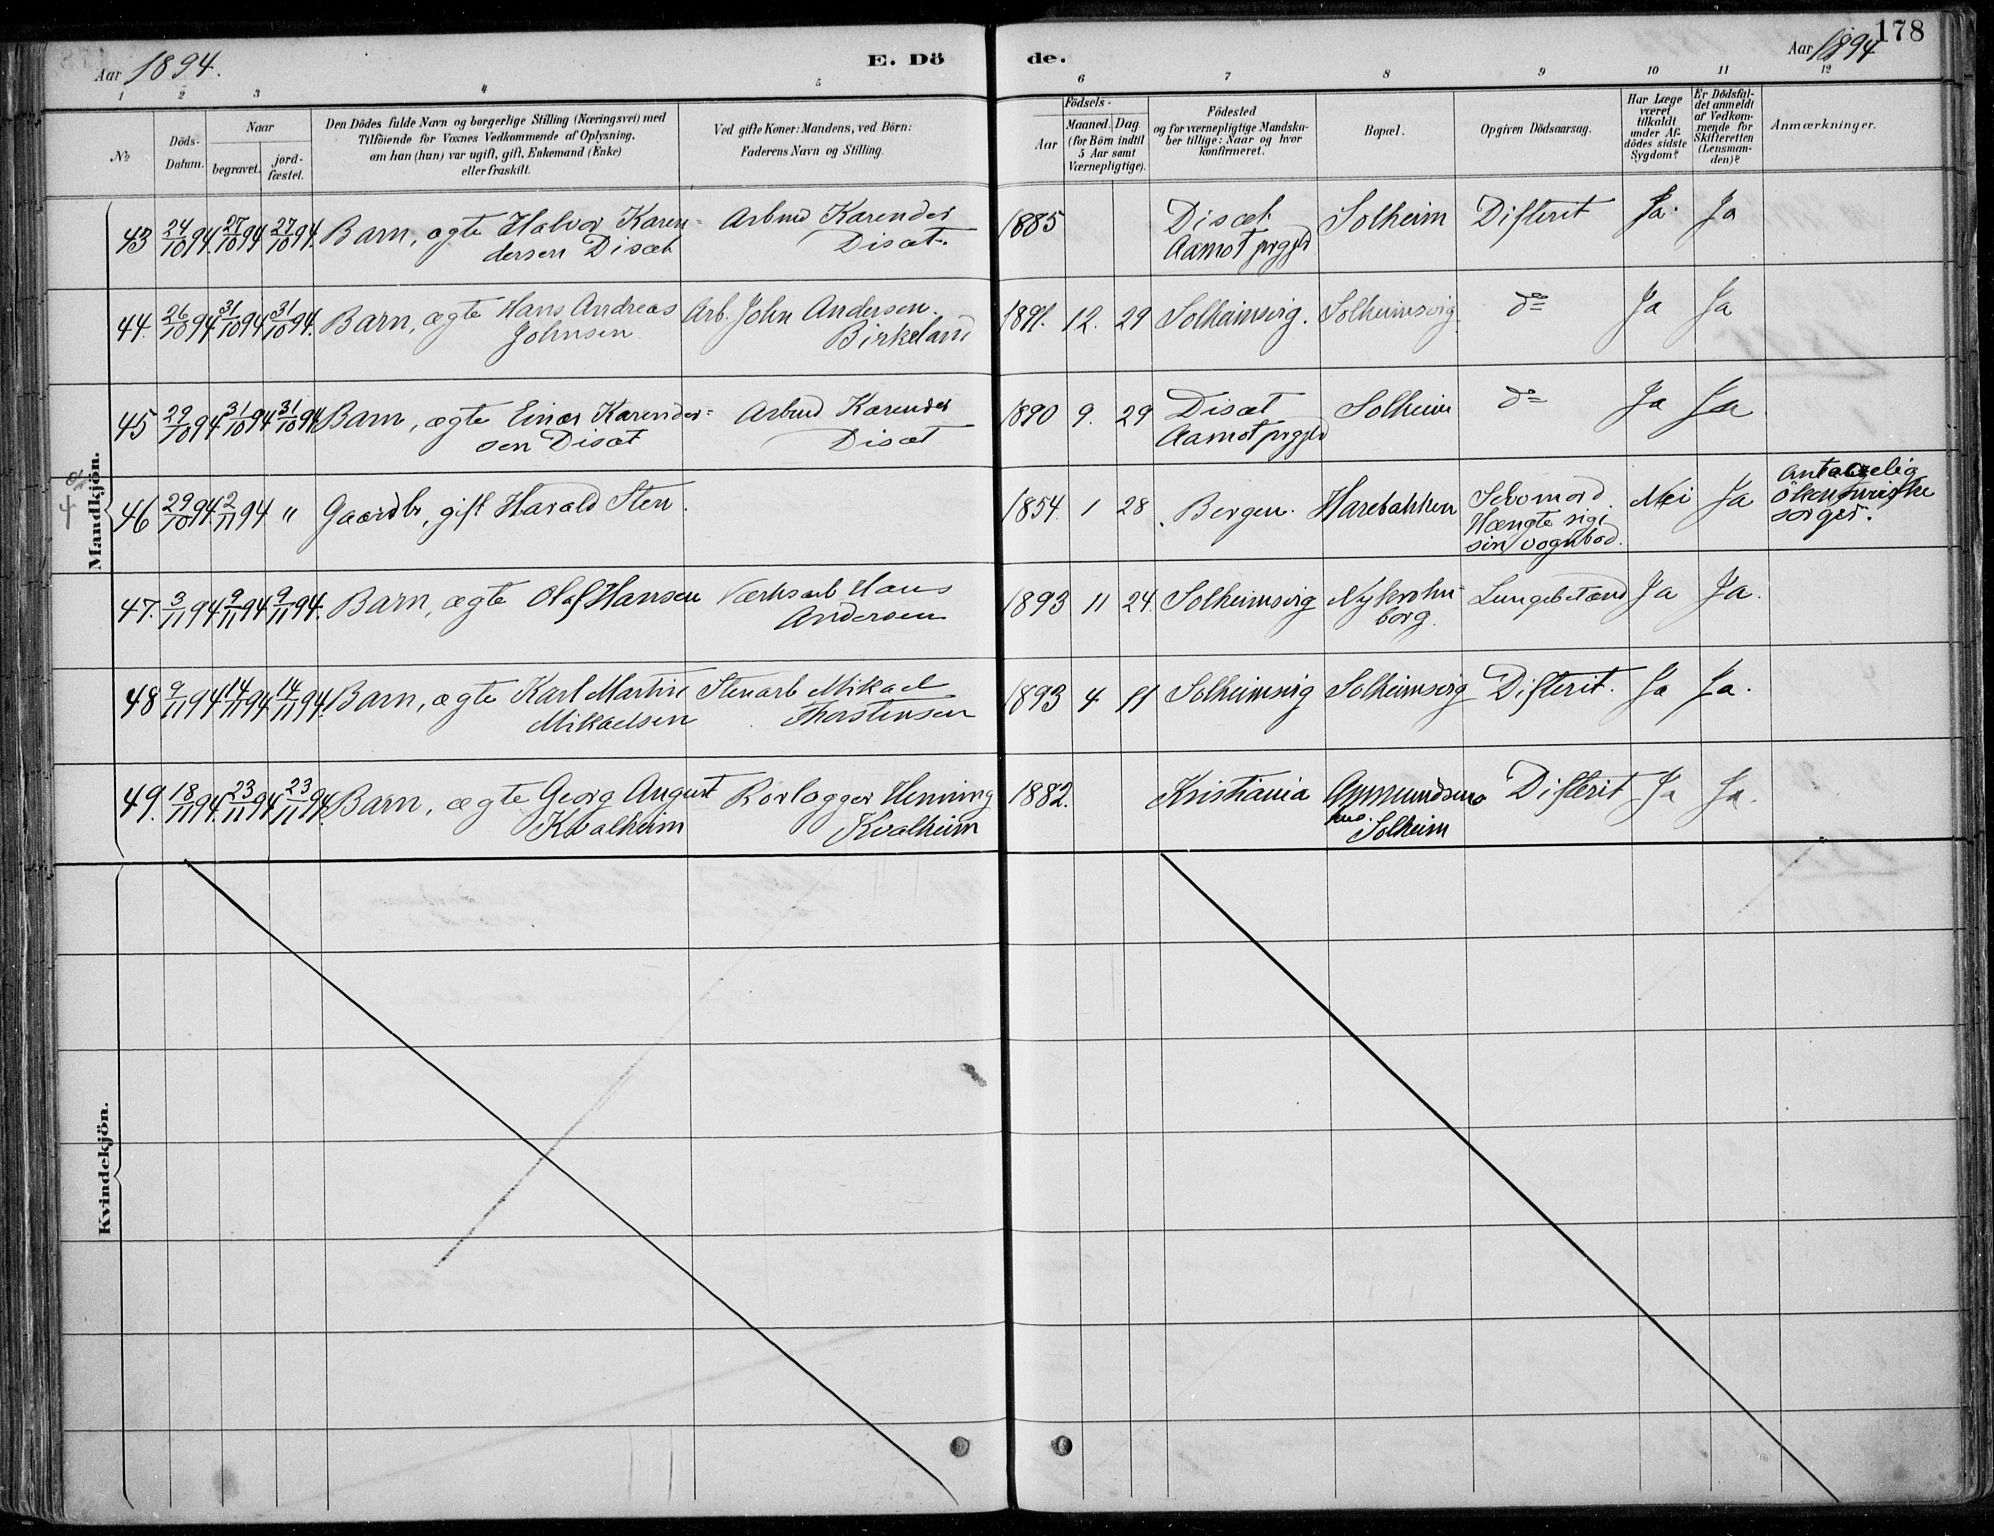 Aar 1894.
E. Döde.
Aar 1894
178
1 2 3 4 5 6 7 8 9 10 11 12
No
Döds-Datum.
Naar
begravet.
jord-fæstet.
Den Dödes fulde Navn og borgerlige Stilling (Næringsvei) med
Tilföiende for Voxnes Vedkommende af Oplysning,
om han (hun) var ugift, gift, Enkemand (Enke)
eller fraskilt.
Ved gifte Koner: Mandens, ved Börn:
Faderens Navn og Stilling.
Födsels-
Aar
Maaned. Dag
(for Börn indtil
5 Aar samt
Værnepligtige).
Födested
og for værnepligtige Mandska-
ber tillige: Naar og hvor
konfirmeret.
Bopæl.
Opgiven Dödsaarsag.
Har Læge
været
tilkaldt
under Af-
dödes sidste
Sygdom?
Er Dödsfal-
det anmeldt
af Vedkom-
mende for
Skifteretten
(Lensman-
den)?
Anmærkninger.
Mandkjön.
43 24/10 94. 27/10 94 27/10 94. Barn, ægte Halvor Karen- Arbmd Karender 1885 Disæt Solheim Difterit Ja. Ja
dersen Disæt Disæt. Aamot prgjld
44. 26/10 94 31/10 94 31/10 94. Barn, ægte Hans Andreas Arb. John Andersen. 1891. 12. 29 Solheimsvig. Solheimsvig. do Ja Ja
Johnsen Birkeland
45 29/10 94 31/10 94 31/10 94 Barn, ægte Einar Karender= Arbmd Karender 1890 9. 29 Disæt Solheim do Ja Ja
sen Disæt Disæt Aamot prgjld
46 29/10 94. 2/11 94 " Gaardbr, gift Harald Sten. 1854. 1 28 Bergen. Harebakken Selvmord. Nei Ja Antagelig
Hængte sig i ökonomiske
sin vognbod. sorger.
47. 3/11 94 9/11 94 9/11 94. Barn, ægte Olaf Hansen Værksarb Hans 1893 11 24. Solheimsvig Nykrohn- Lungebetænd Ja Ja.
Andersen borg.
48 9/11 94 14/11 94 14/11 94. Barn, ægte Karl Martin Stenarb Mikael 1893 4 11 Solheimsvig Solheimsvig Difterit. Ja Ja.
Mikaelsen Thorstensen
49. 18/11 94. 23/11 94 23/11 94. Barn, ægte Georg August Rörlægger Henning 1882. Kristiania Ammundsens Difterit Ja Ja.
Kvalheim Kvalheim hus. Solheim
Kvindekjön.